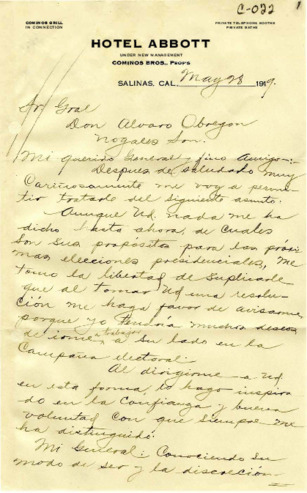 C-022
1
COMINOS GRILL
IN CONNECTION
PRIVATE TELEPHONE BOOTHS
PRIVATE BATHS
HOTEL ABBOTT
UNDER NEW MANAGEMENT
COMINOS BROS., PROPS
SALINAS, CAL. May 28 1919.
Sr Gral
Don Alvaro Obregon
Nogales Son.
Mi querido General y fino Amigo:-
Despues de saludarlo muy
Cariñosamente me voy a permi
tir tratarle del siguiente asunto:
Aunque Ud. nada me ha
dicho hasta ahora, de cuales
son sus propósitos para las próxi
mas elecciones presidenciales, me
tomo la libertad de suplicarle
que al tomar Ud una resolu-
ción me haga favor de avisarme
porque yo tendria muchos deseos
de irme a trabajar a su lado en la
Campaña electoral.
Al dirigirme a Ud
en esta forma, lo hago inspira
do en la Confianza y buena
voluntad con que siempre me
ha distinguido.
Mi General: Conociendo su
modo de ser y la discreción